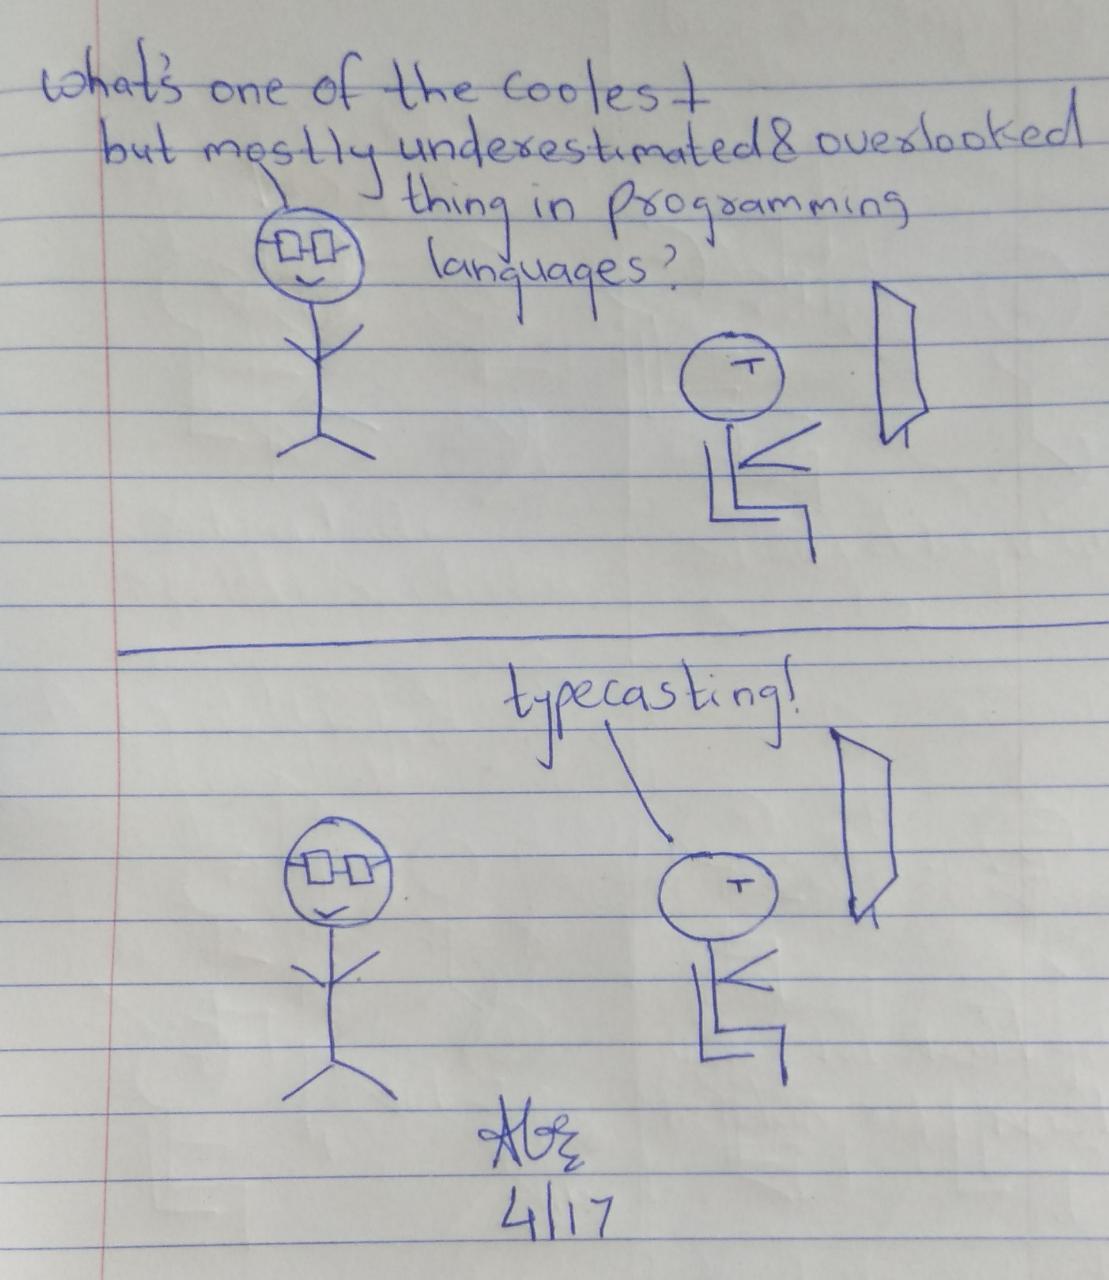 what's one of the coolest
but mostly underestimated & overlooked
thing in programming
languages?
typecasting!
4/17